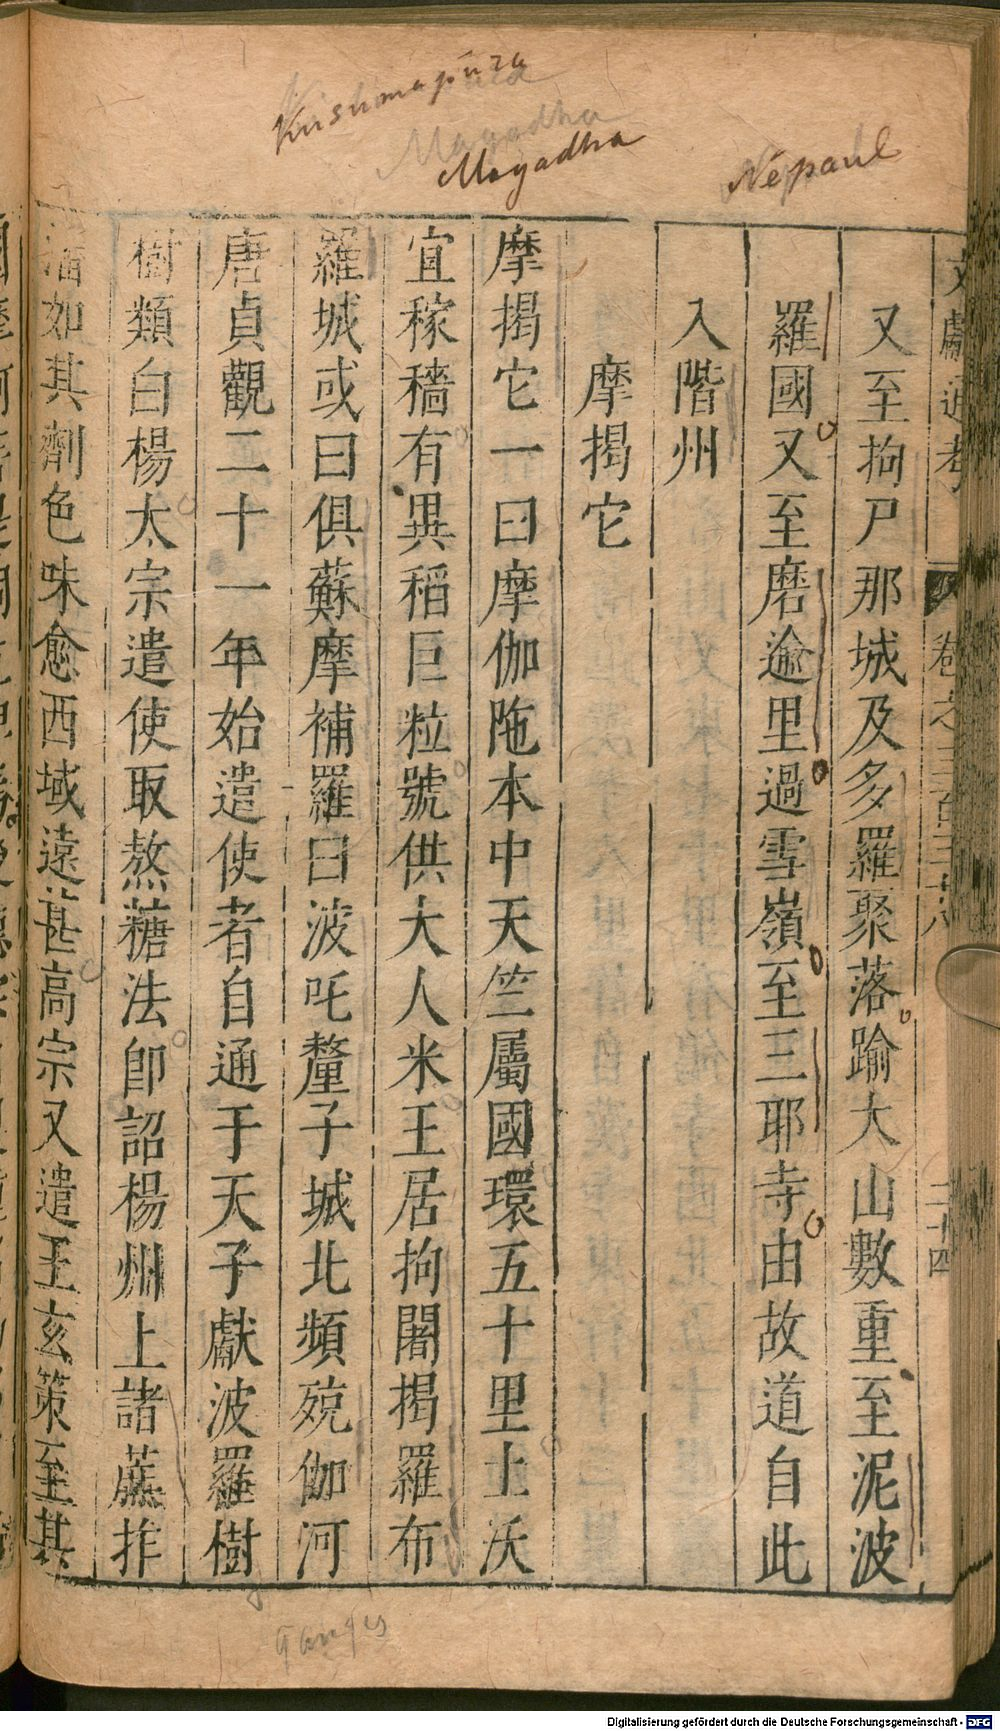 Kusumapura
Magadha
Magadha
Népaul
文獻通考 卷之三百三十八 二十四
又至拘尸那城及多羅聚落踰大山數重至泥波
羅國又至磨逾里過雪嶺至三耶寺由故道自此
入階州
摩揭它
摩揭它一曰摩伽陁本中天竺屬國環五十里土沃
宜稼穡有異稻巨粒號供大人米王居拘闍揭羅布
羅城或曰俱蘇摩補羅曰波吒釐子城北頻殑伽河
唐貞觀二十一年始遣使者自通于天子獻波羅樹
樹類白楊太宗遣使取熬糖法卽詔楊州上諸蔗拃
瀋如其劑色味愈西域遠甚高宗又遣王玄策至其
Ganges
Digitalisierung gefördert durch die Deutsche Forschungsgemeinschaft - DFG